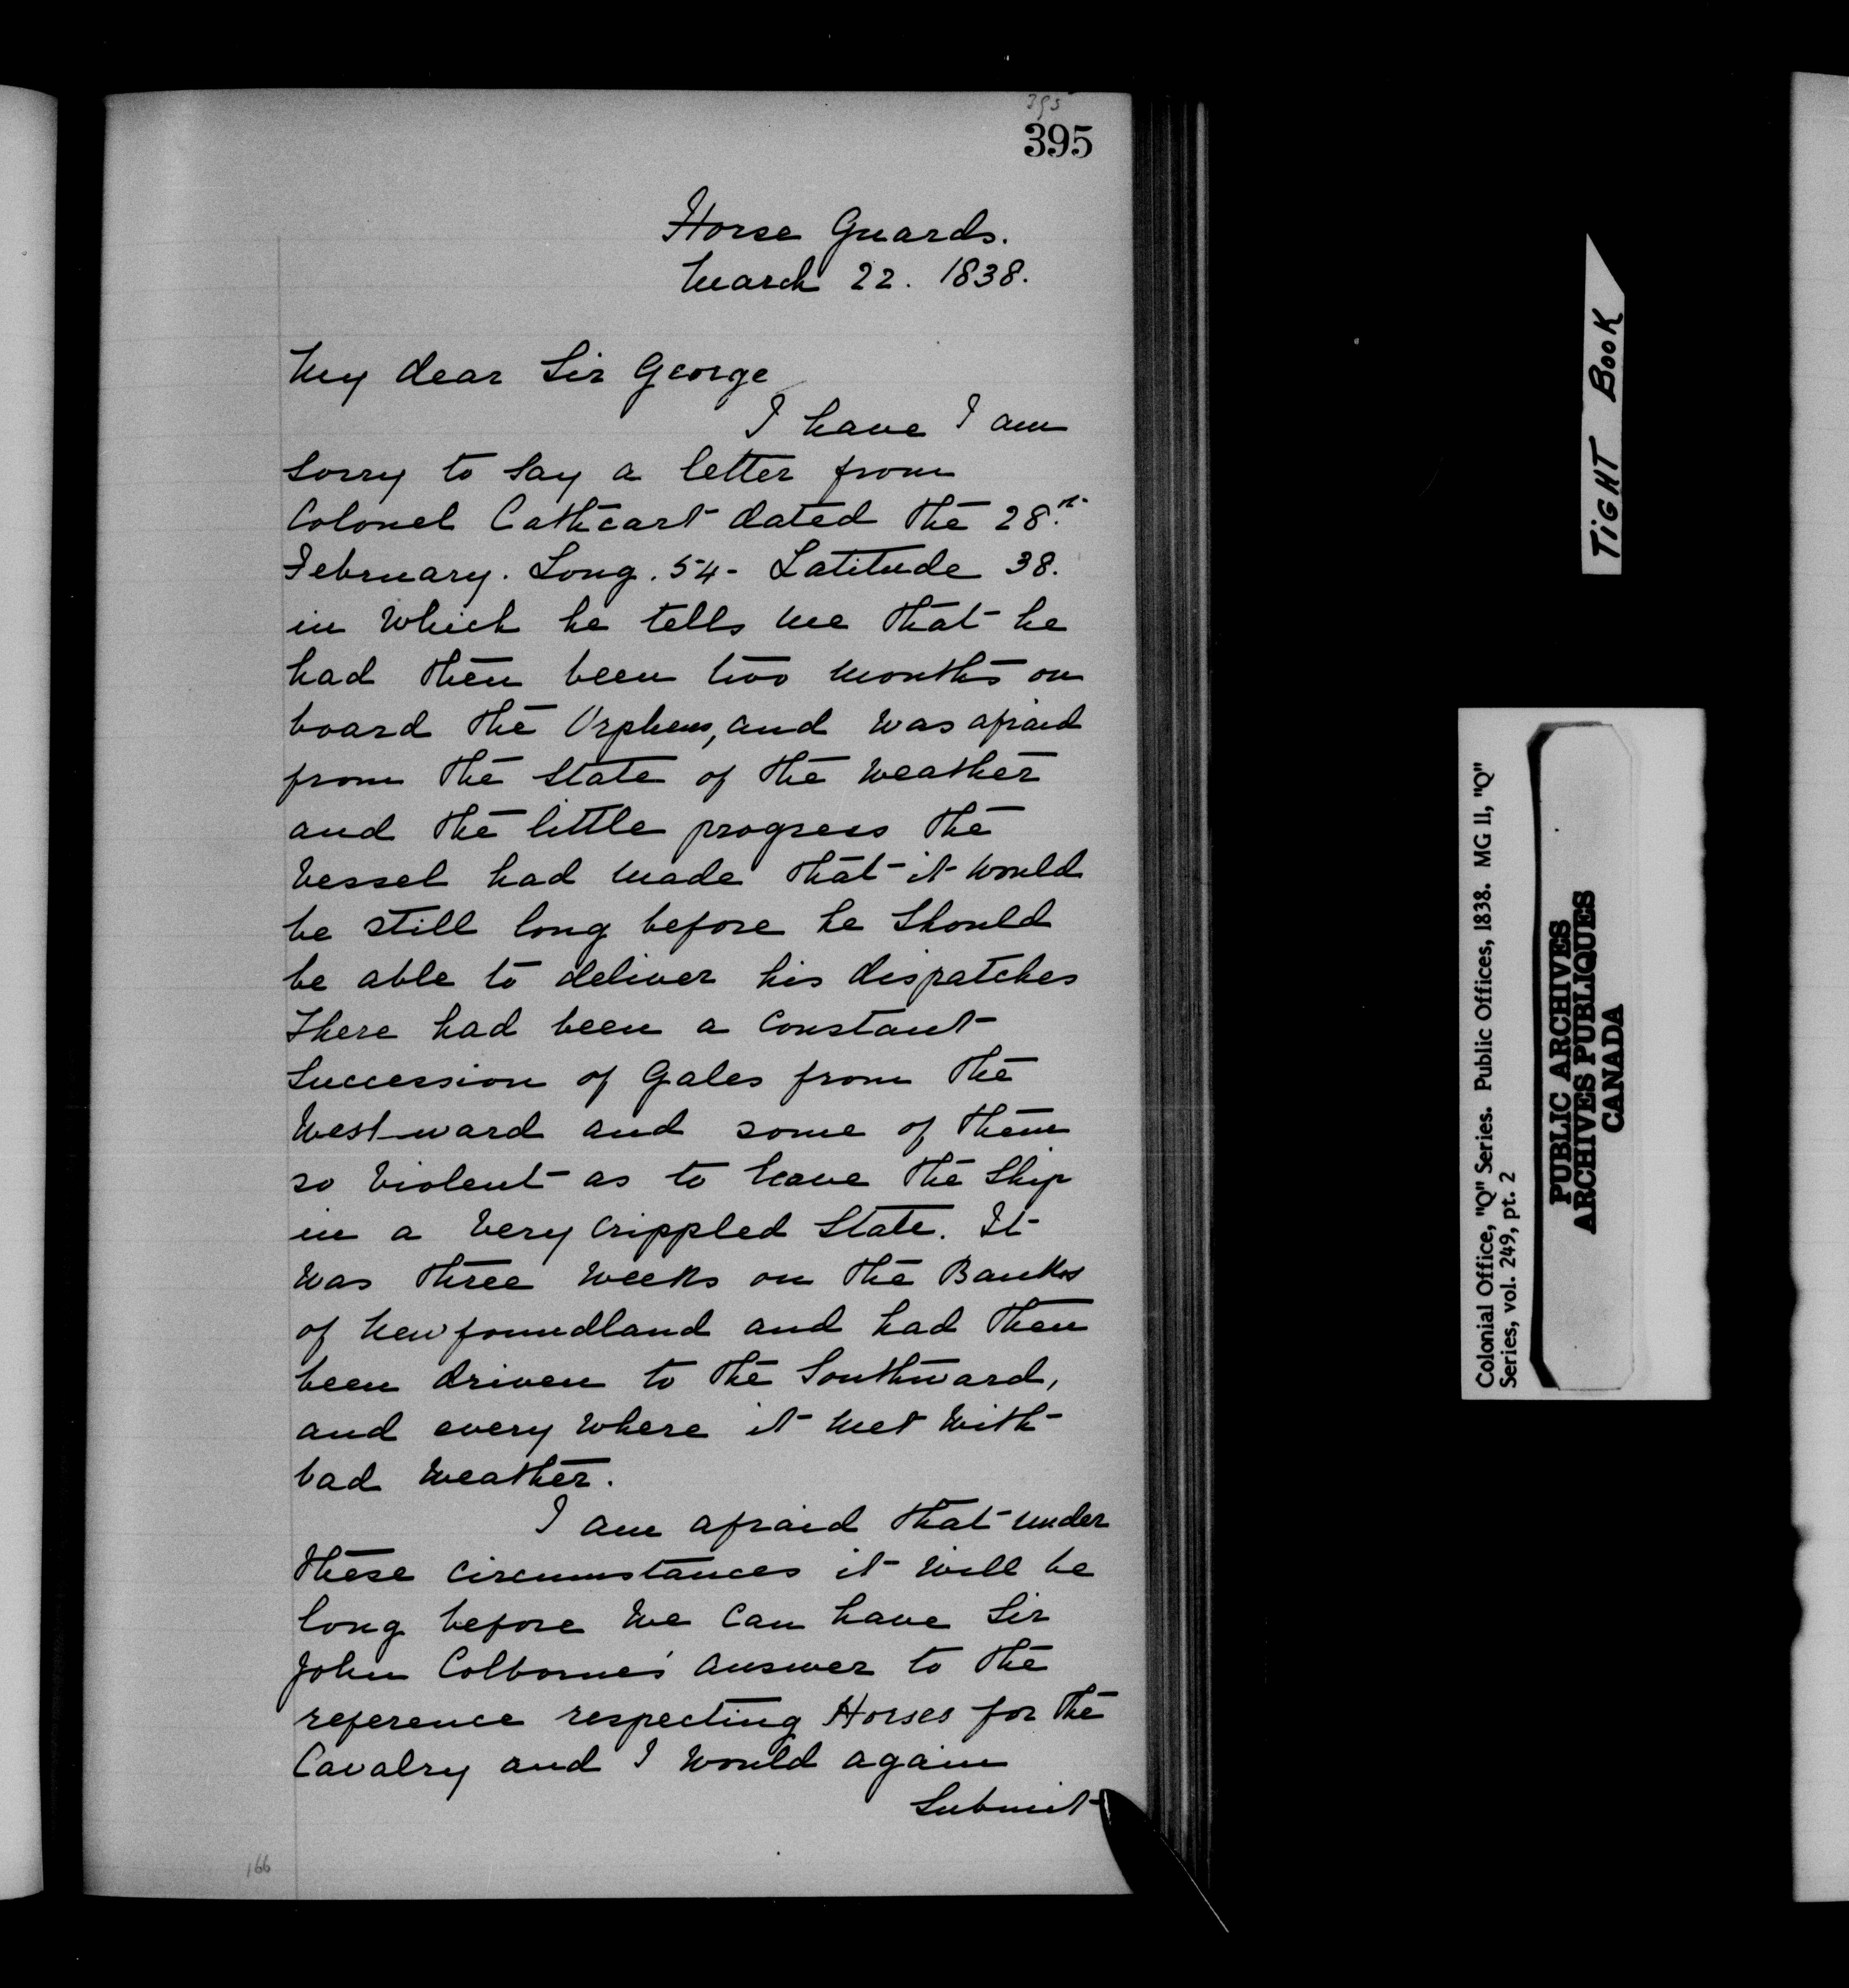 395
395
Horse Guards.
March 22. 1838.
My dear Sir George
I have I am
sorry to say a letter from
Colonel Cathcart dated the 28th
February. Long. 54 - Latitude 38.
in which he tells me that he
had then been two months on
board the Orpheus, and was afraid
from the state of the weather
and the little progress the
Vessel had made that it would
be still long before he should
be able to deliver his dispatches
There had been a constant
Succession of Gales from the
Westward and some of them
so violent as to leave the Ship
in a very crippled State. It
was three weeks on the Banks
of Newfoundland and had then
been driven to the Southward,
and every where it met with
bad weather.
I am afraid that under
these circumstances it will be
long before we can have Sir
John Colborne's answer to the
reference respecting Horses for the
Cavalry and I would again
Submit
166
TIGHT BOOK
Colonial Office, "Q" Series. Public Offices, 1838. MG 11, "Q"
Series, vol. 249, pt. 2
PUBLIC ARCHIVES
ARCHIVES PUBLIQUES
CANADA